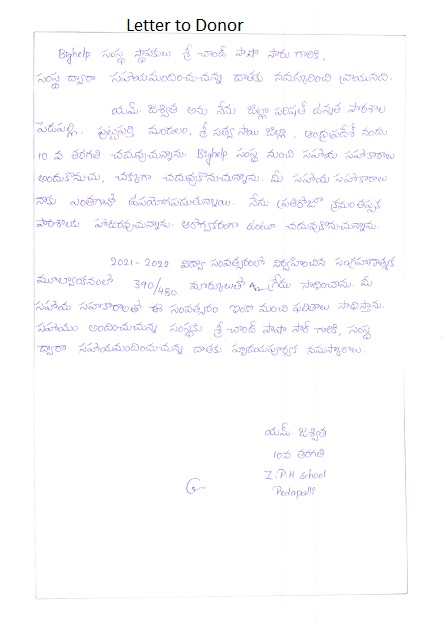 Letter to Donor
Bighelp సంస్థ స్థాపకులు శ్రీ చాంద్ పాషా సారు గారికి,
సంస్థ ద్వారా సహాయమందించుచున్న దాతకు నమస్కరించి వ్రాయునది.
యమ్. జశ్విత అను నేను జిల్లా పరిషత్ ఉన్నత పాఠశాల
పెదపల్లి, పుట్టపర్తి మండలం, శ్రీ సత్య సాయి జిల్లా, ఆంధ్రప్రదేశ్ నందు
10 వ తరగతి చదువుచున్నాను. Bighelp సంస్థ నుంచి సహాయ సహకారాలు
అందుకొనుచు, చక్కగా చదువుకొనుచున్నాను. మీ సహాయ సహకారాలు
నాకు ఎంతగానో ఉపయోగపడుతున్నాయి. నేను ప్రతిరోజూ క్రమంతప్పక
పాఠశాలకు హాజరవుచున్నాను. ఆరోగ్యకరంగా ఉంటూ చదువుకొనుచున్నాను.
2021-2022 విద్యా సంవత్సరంలో నిర్వహించిన సంగ్రహణాత్మక
మూల్యాంకనంలో 390/480 మార్కులతో A2 గ్రేడు సాధించాను. మీ
సహాయ సహకారాలతో ఈ సంవత్సరం ఇంకా మంచి ఫలితాలు సాధిస్తాను.
సహాయం అందించుచున్న సంస్థకు శ్రీ చాంద్ పాషా సార్ గారికి, సంస్థ
ద్వారా సహాయమందించుచున్న దాతకు హృదయపూర్వక నమస్కారాలు.
యమ్. జశ్విత
10వ తరగతి
Z.P.H School
Pedapalli